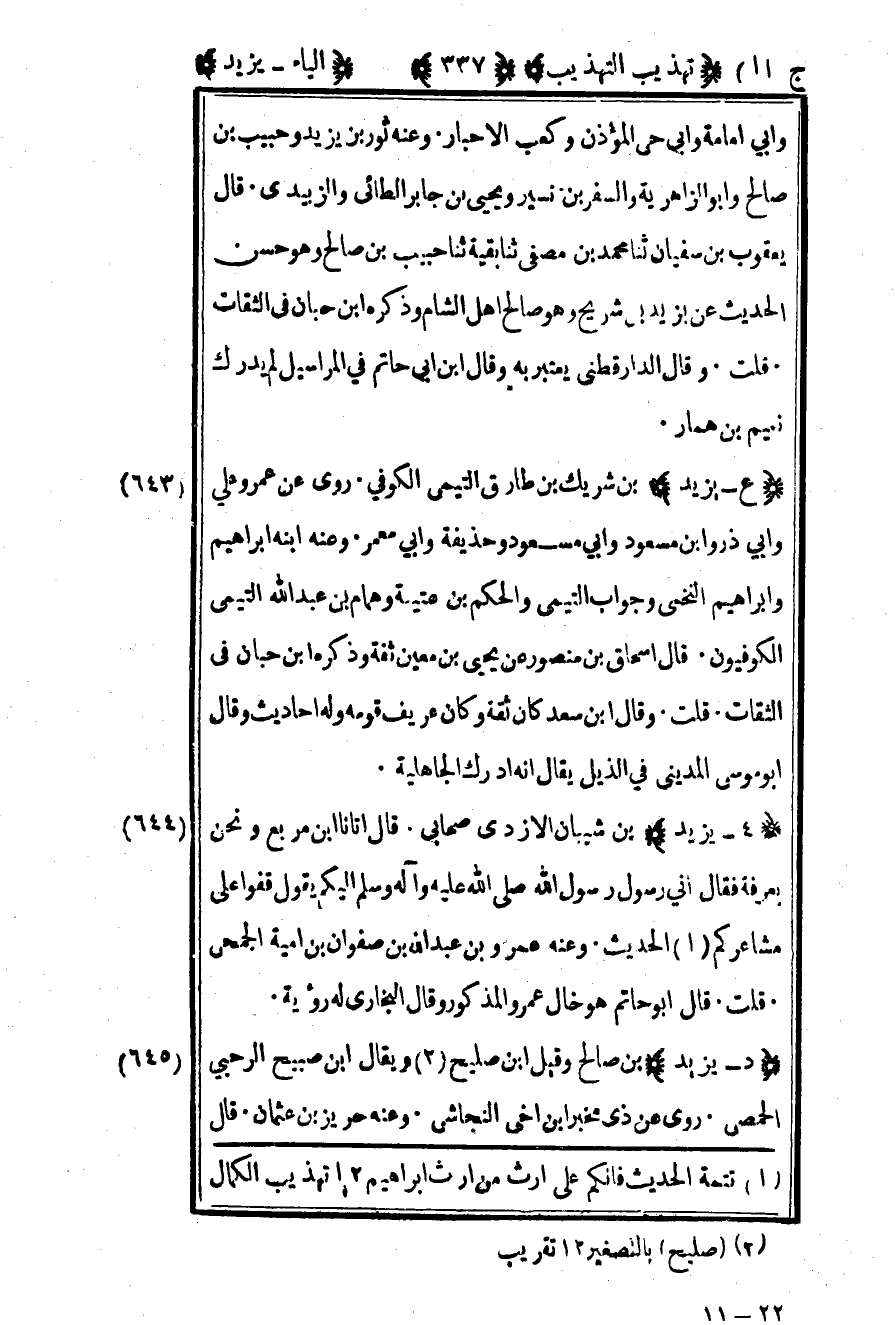 ج ١١ ) ﴿ تهذيب التهذيب ﴾ ﴿ ٣٣٧ ﴾ ﴿ الياء ـ يزيد ﴾
وابي امامة وابي حى المؤذن وكعب الاحبار · وعنه ثور بن يزيد وحبيب بن
صالح وابو الزاهرية والسفر بن نسير ويحيى بن جابر الطائى والزبيدى · قال
يعقوب بن سفيان ثنا محمد بن مصفى ثنا بقية ثنا حبيب بن صالح وهو حسن
الحديث عن يزيد بن شريح وهو صالح اهل الشام وذكره ابن حبان فى الثقات
· قلت · وقال الدارقطنى يعتبر به وقال ابن ابي حاتم في المراسيل لم يدرك
نعيم بن همار ·
﴿ ع ـ يزيد ﴾ بن شريك بن طارق التيمى الكوفي · روى عن عمر وعلي (٦٤٣)
وابي ذر وابن مسعود وابي مسعود وحذيفة وابي معمر · وعنه ابنه ابراهيم
وابراهيم النخعى وجواب التيمى والحكم بن عتيبة وهمام بن عبد الله التيمى
الكوفيون · قال اسحاق بن منصور عن يحيى بن معين ثقة وذكره ابن حبان فى
الثقات · قلت · وقال ابن سعد كان ثقة وكان عريف قومه وله احاديث وقال
ابو موسى المدينى في الذيل يقال انه ادرك الجاهلية ·
﴿ ٤ ـ يزيد ﴾ بن شيبان الازدى صحابي · قال اتانا ابن مربع ونحن (٦٤٤)
بعرفة فقال انى رسول رسول الله صلى الله عليه وآله وسلم اليكم يقول قفوا على
مشاعركم (١) الحديث · وعنه عمرو بن عبد الله بن صفوان بن امية الجمحى
· قلت · قال ابو حاتم هو خال عمرو المذكور وقال البخارى له رؤية ·
﴿ د ـ يزيد ﴾ بن صالح وقيل ابن صليح (٢) ويقال ابن صبيح الرحبي (٦٤٥)
الحمصى · روى عن ذى مخبر ابن اخى النجاشى · وعنه حريز بن عثمان · قال
(١) تتمة الحديث فانكم على ارث من ارث ابراهيم ١٢ تهذيب الكمال
(٢) (صليح) بالتصغير ١٢ تقريب
٢٢ – ١١